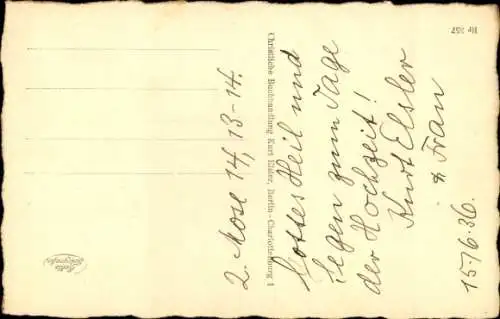 2. Mose 14, 13-14.
Gottes Heil und
Segen zum Tage
der Hochzeit!
Kurt Elsler
& Frau
15/6.36.
Christliche Buchhandlung Kurt Elsler, Berlin-Charlottenburg 1
Nr 357